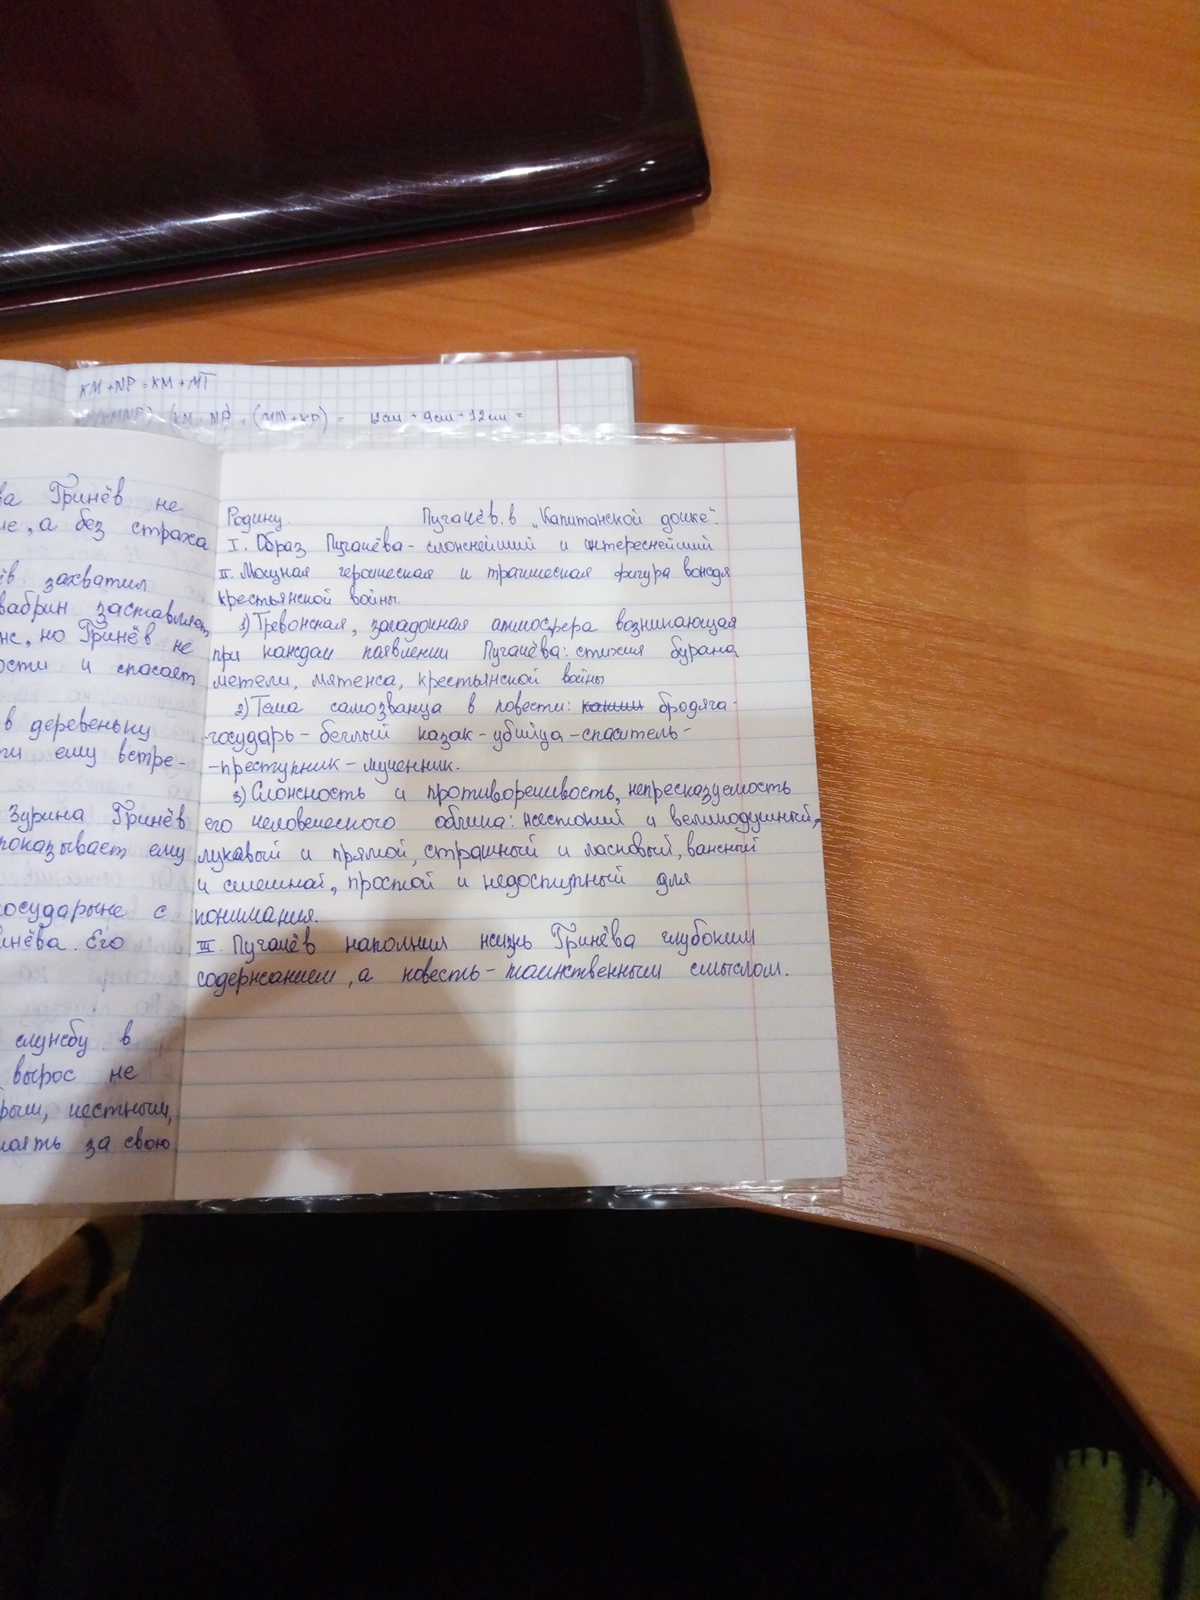 КМ + NP = КМ + МТ
(КМ + NP) + (МN + КР) = 12см + 9см + 12см =
ва Гринёв не
ие, а без страха
ёв захватил
вабрин заставляет
нс, но Гринёв не
ости и спасает
в деревеньку
ти ему встре-
Зурина Гринёв
показывает ему
осударыне с
инёва. Его
службу в
вырос не
рым, честным,
оять за свою
Родину. Пугачёв в „Капитанской дочке".
I. Образ Пугачёва - сложнейший и интереснейший
II. Мощная героическая и трагическая фигура вождя
крестьянской войны.
1) Тревожная, загадочная атмосфера возникающая
при каждом появлении Пугачёва: стихия бурана,
метели, мятежа, крестьянской войны
2) Тема самозванца в повести: бродяга-
-государь - беглый казак - убийца - спаситель -
-преступник - мученник.
3) Сложность и противоречивость, непресказуемость
его человеческого облика: жестокий и великодушный,
лукавый и прямой, страшный и ласковый, важный
и смешной, простой и недоступный для
понимания.
III. Пугачёв наполнил жизнь Гринёва глубоким
содержанием, а повесть - таинственным смыслом.